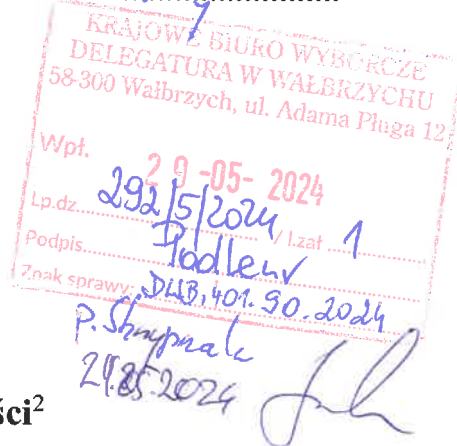 KRAJOWE BIURO WYBORCZE
DELEGATURA W WAŁBRZYCHU
58-300 Wałbrzych, ul. Adama Pługa 12
Wpł. 20-05-2024
Lp.dz. 292/5/2024 / l.zał. 1
Podpis
Znak sprawy: DWB.401.90.2024
2024
ści²